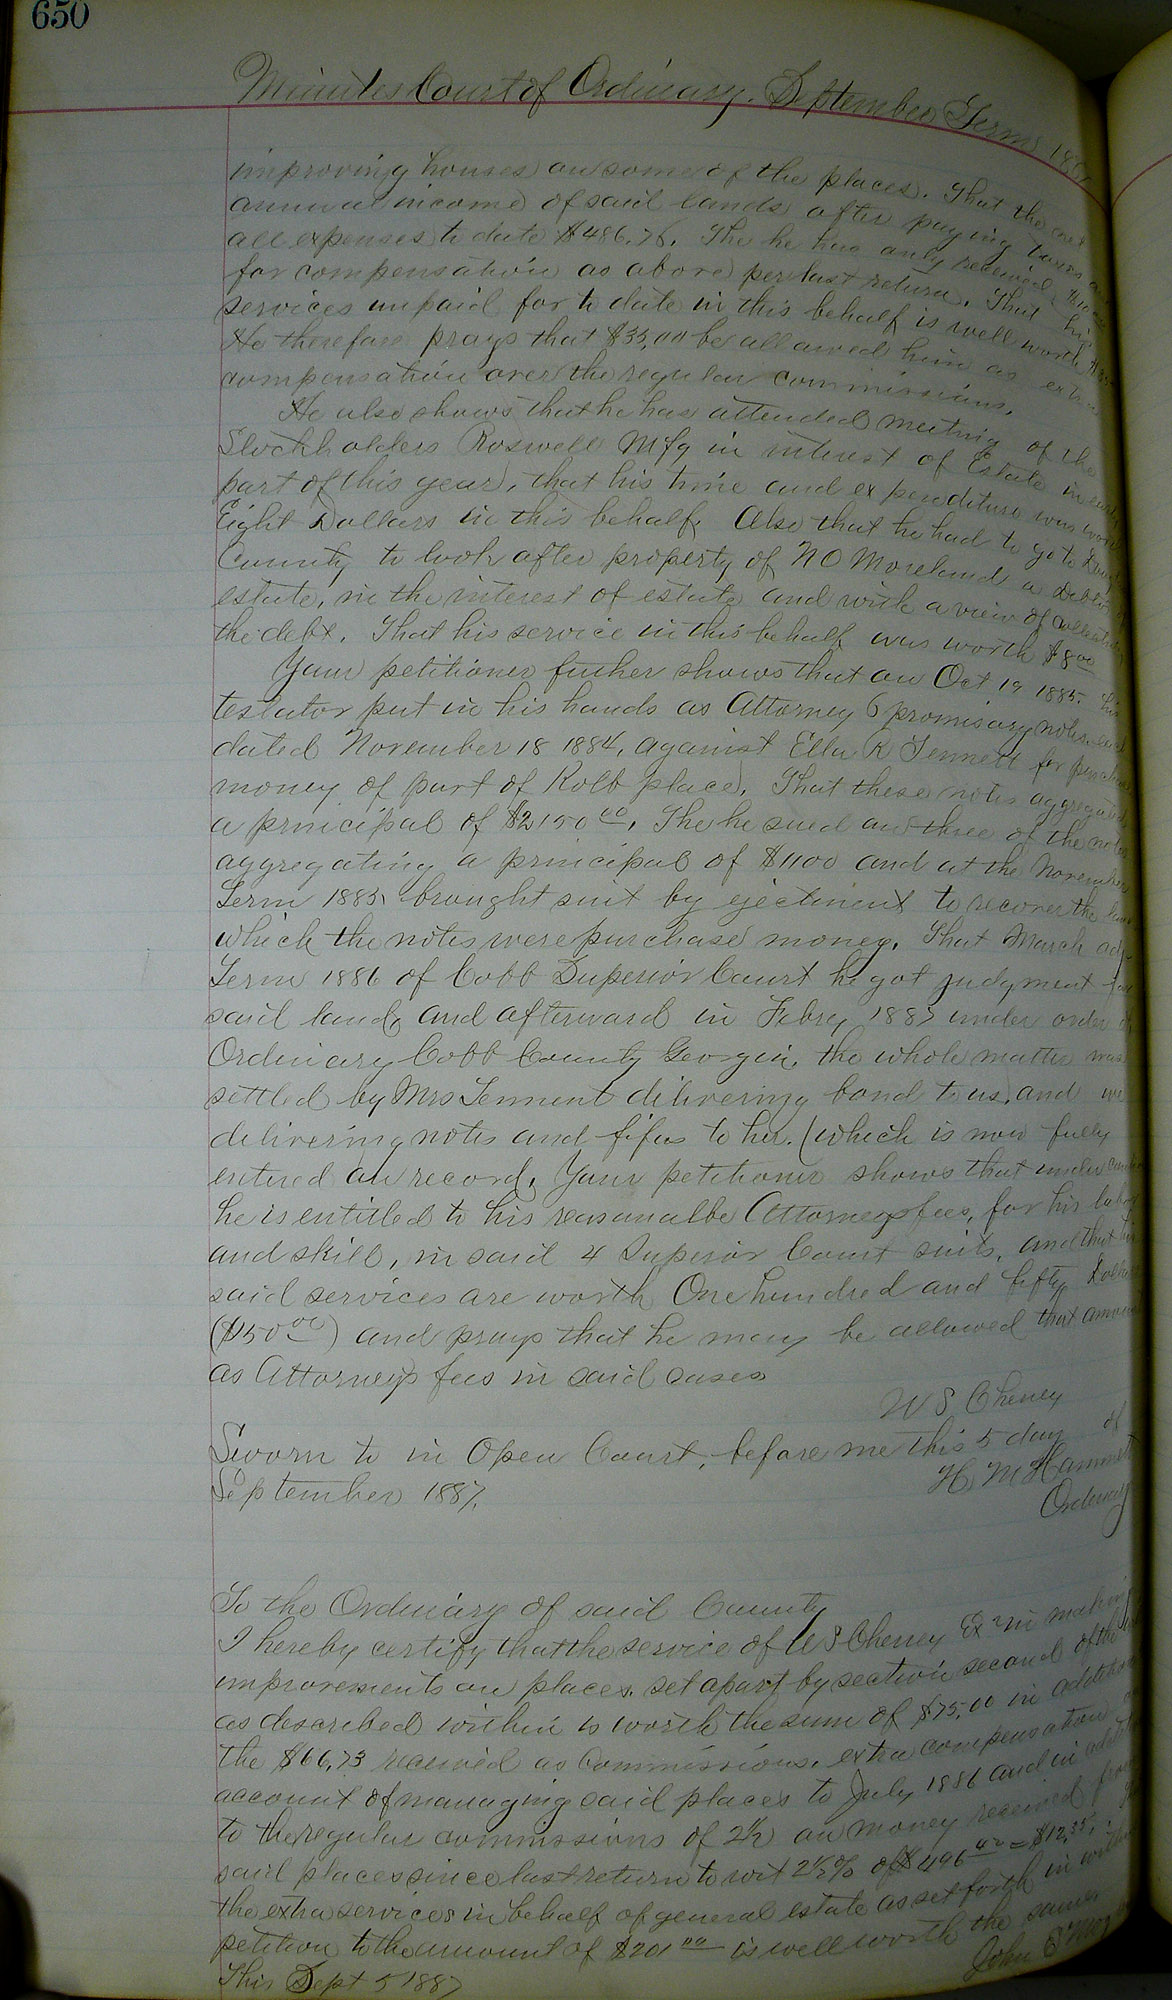 650
Minutes Court of Ordinary. September Term
improving houses on some of the places. That the net
annual income of said lands after paying taxes
all expenses to date $486.76. The he has only received
for compensation as above per last return. That his
services unpaid for to date in this behalf is well worth
He therefore prays that $35,00 be allowed him as extra
compensation over the regular commissions.
He also shows that he has attended meeting of the
Stockholders Roswell Mfg in interest of Estate in early
part of this year, that his time and expenditure was worth
Eight Dollars in this behalf. Also that he had to go to
County to look after property of N O Moreland a debtor of
estate, in the interest of estate and with a view of collecting
the debt. That his service in this behalf was worth $8 00
Your petitioner futher shows that on Oct 19 1885.
testator put in his hands as Attorney 6 promisary notes
dated November 18 1884, against Ella R Tennent for purchase
money of part of Kolb place. That these notes aggregated
a principal of $2150 00. The he sued on three of the notes
aggregating a principal of $1100 and at the November
Term 1885 brought suit by ejectment to recover the
which the notes were purchase money. That March adj
Term 1886 of Cobb Superior Court he got judgment for
said land, and afterward in Febry 1887 under order of
Ordinary Cobb County Georgia, the whole matter was
settled by Mrs Tennent delivering bond to us, and we
delivering notes and fifas to her. (which is now fully
entered on record. Your petitioner shows that under
he is entitled to his reasonalbe Attorneys fees, for his labor
and skill, in said 4 Superior Court suits, and that his
said services are worth One hundred and fifty Dollars
($150 00) and prays that he may be allowed that amount
as Attorneys fees in said cases
W S Cheney
Sworn to in Open Court, before me this 5 day of
September 1887.
H. M Hammett
Ordinary
To the Ordinary of said County
I hereby certify that the service of W S Cheney Exr in making
improvements on places, set apart by section second of the
as described within is worth the sum of $75.00 in addition
the $66,73 received as Commissions, extra compensation
account of managing said places to July 1886 and in addition
to the regular commissions of 2½ on money received from
said places since last return to wit 2½% of $496 40 = $12,35,
the extra services in behalf of general estate as set forth in within
petition to the amount of $201 00 is well worth the same
This Sept 5 1887
John